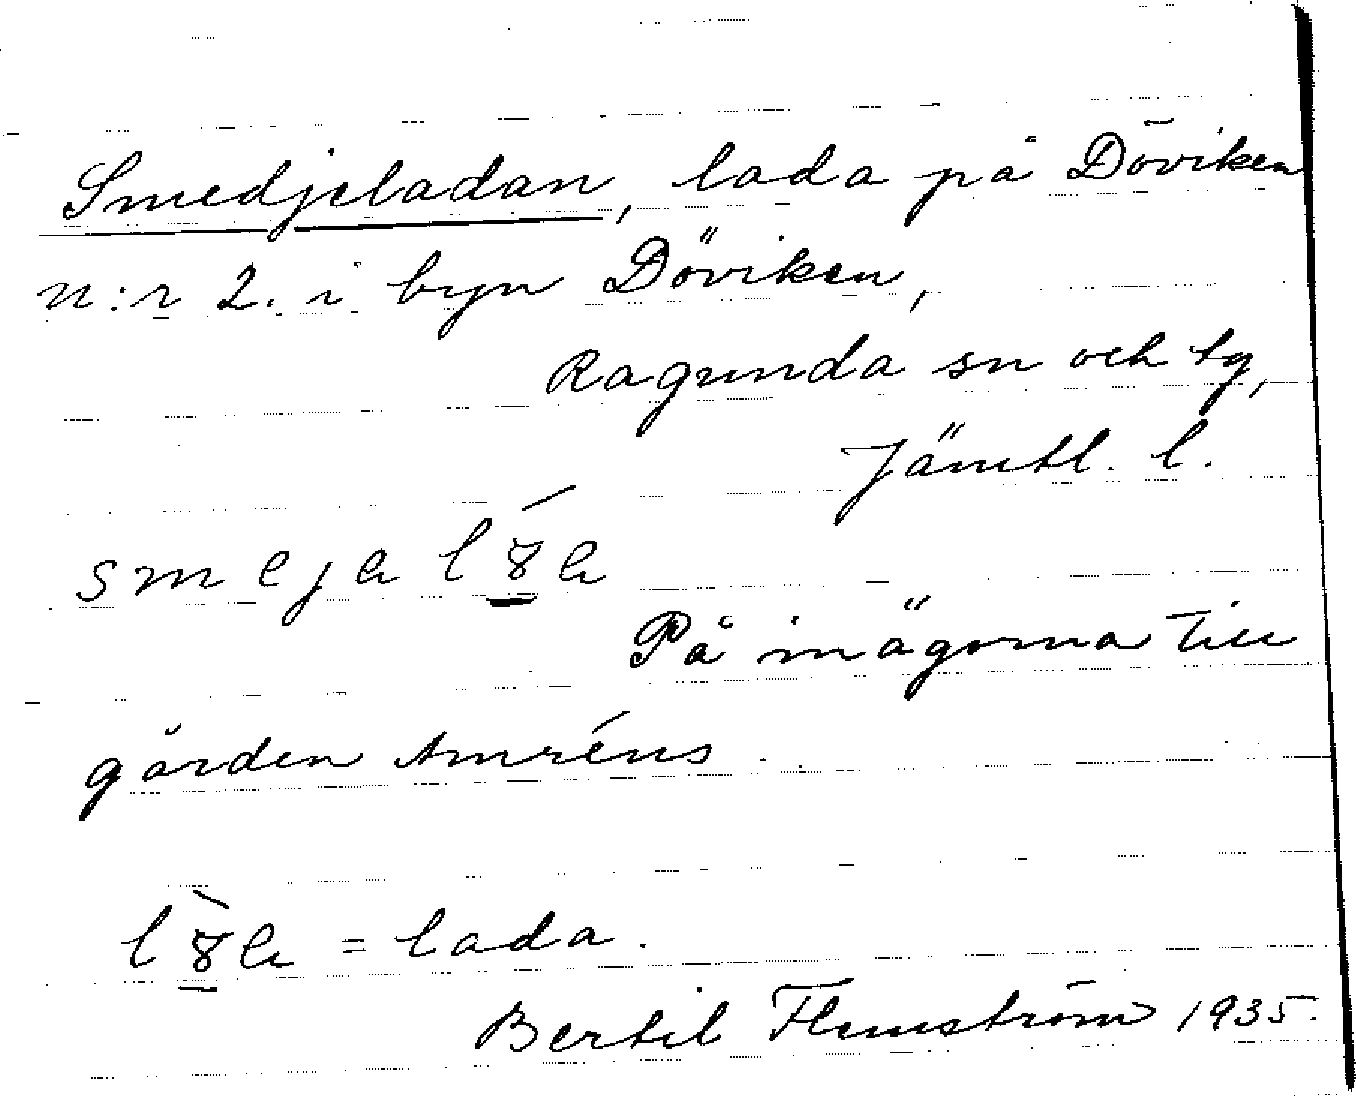 Smedjeladan, lada på Döviken
n:r 2. i byn Döviken,
Ragunda sn och tg,
Jämtl. l.
På inägorna till
gården Amréns.
= lada.
Bertil Flemström 1935.